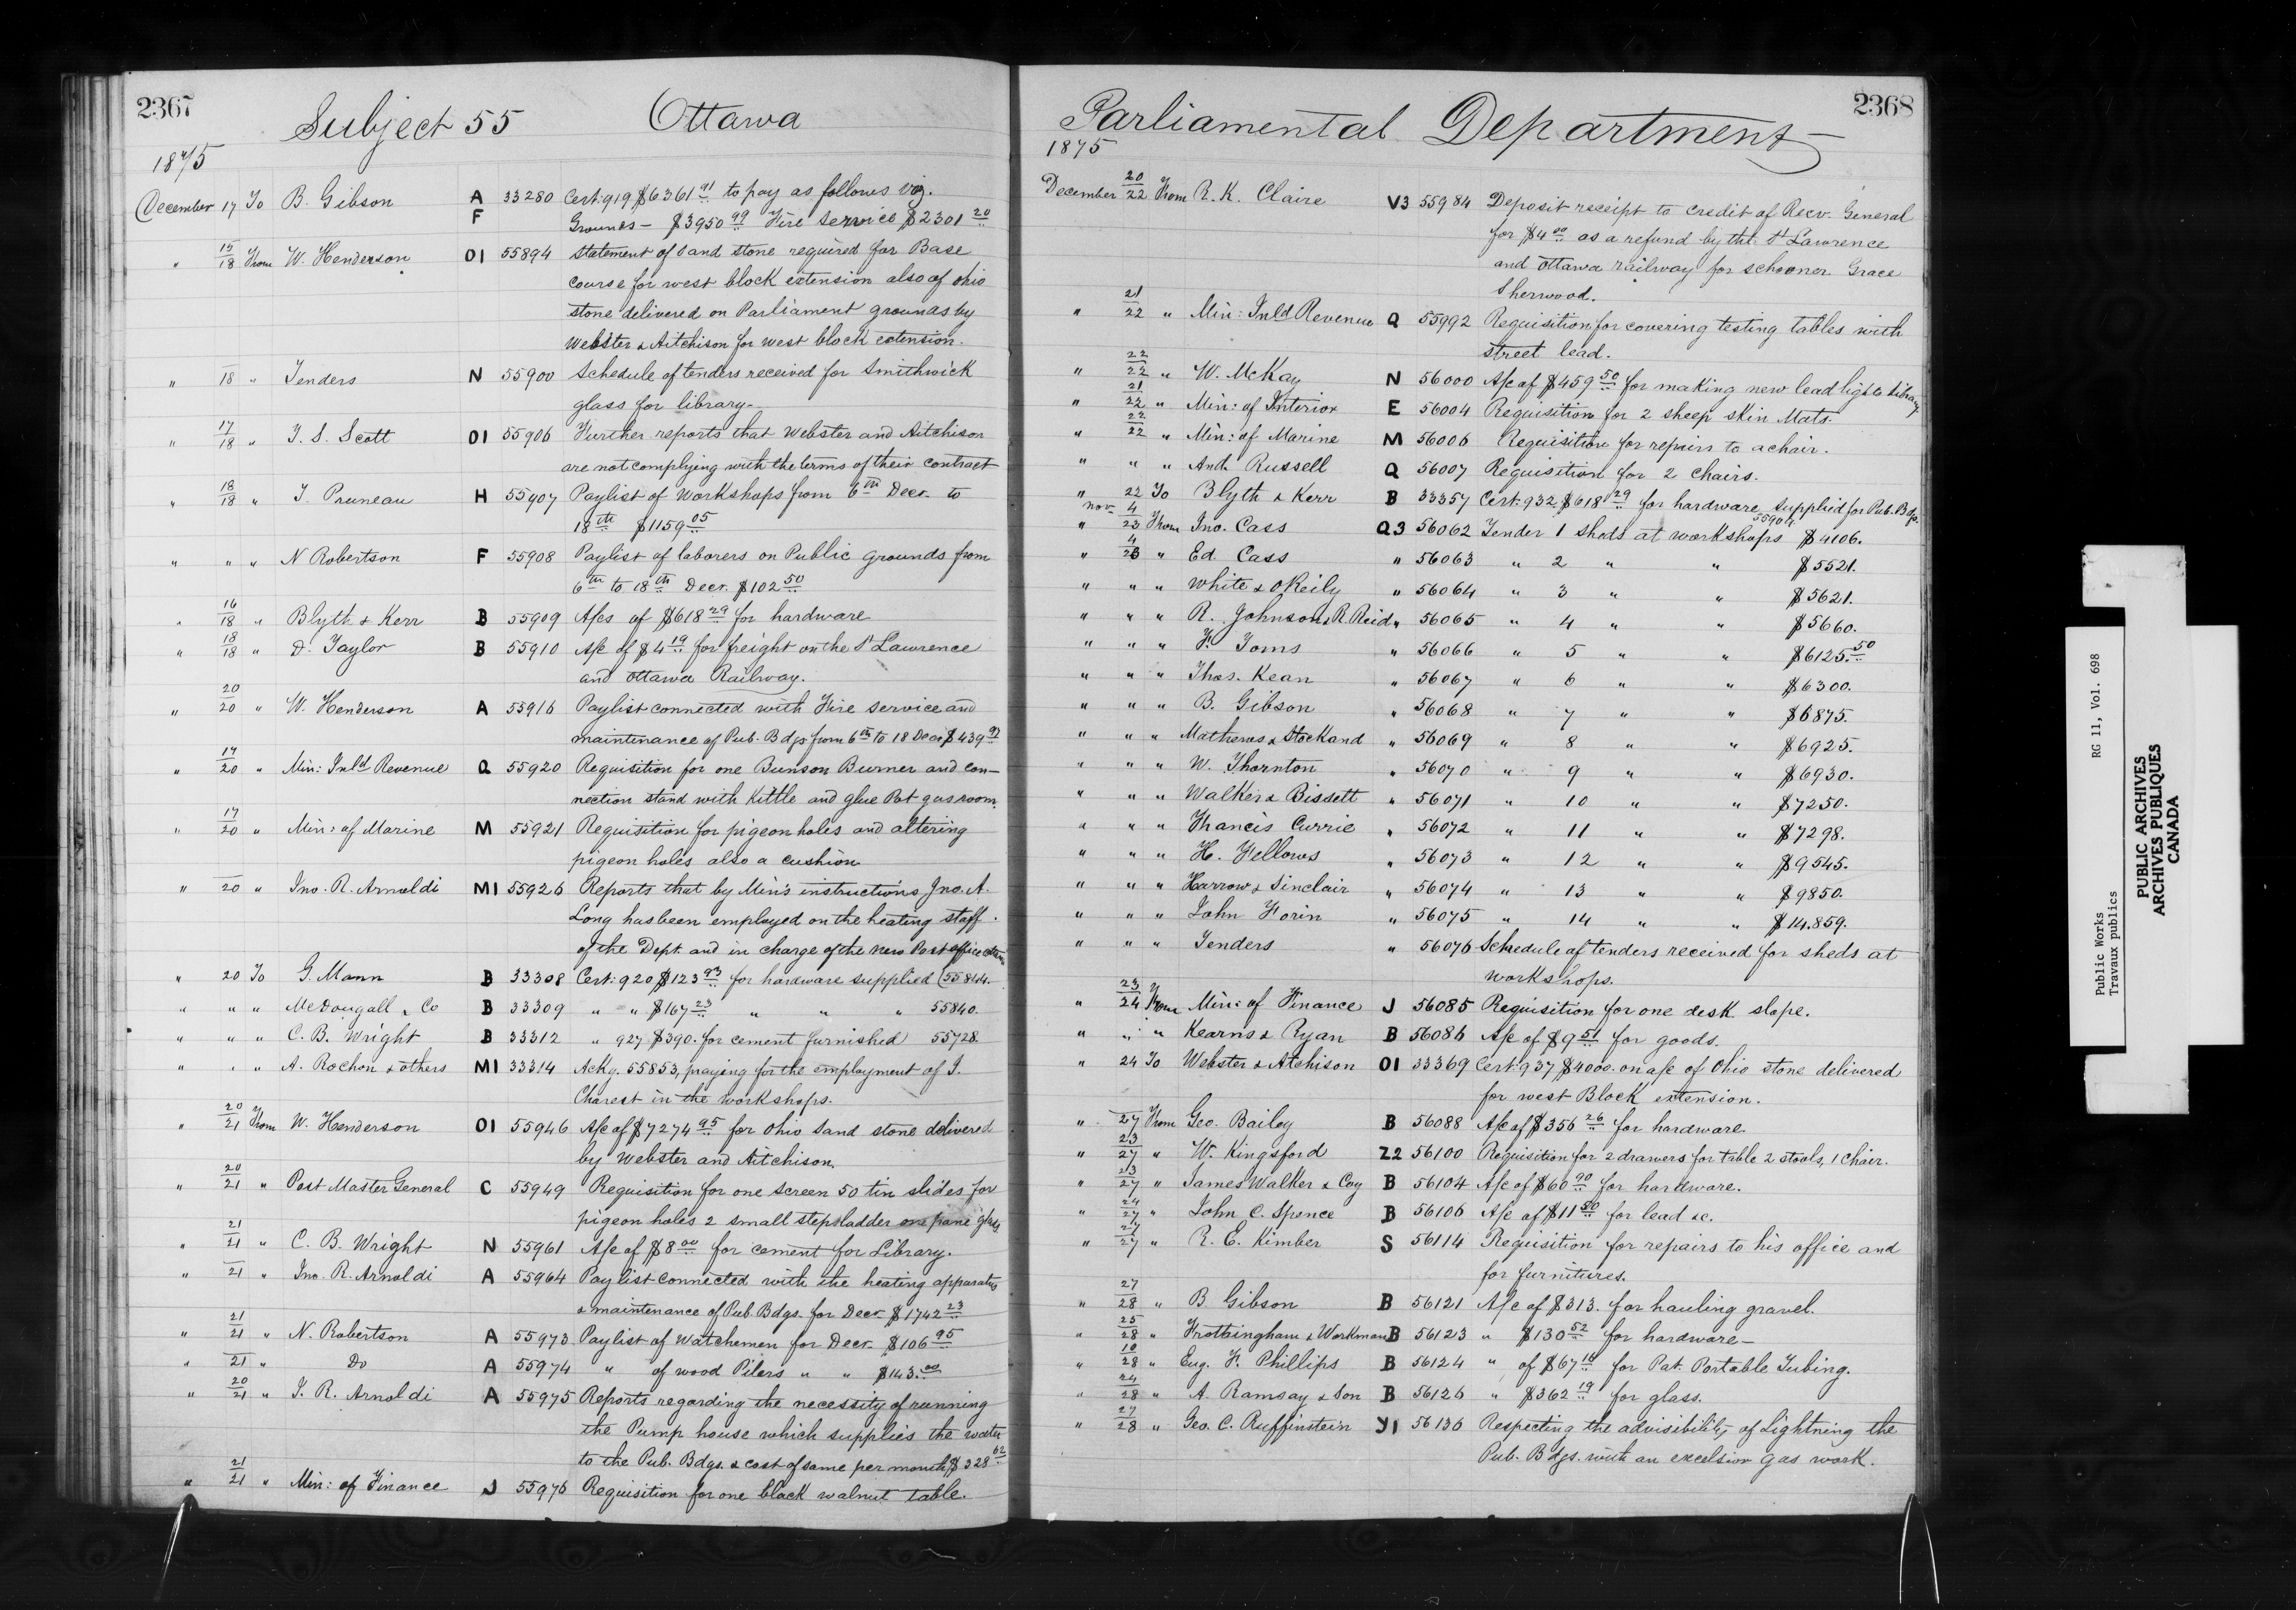 2367
Subject 55 Ottawa
1875
December 17 To B. Gibson A 33280 Cert: 919 $6361.91 to pay as follows viz.
F Grounds — $3950.99 Fire Service $2301.20
" 15/18 From W. Henderson O1 55894 Statement of Sand stone required for Base
course for west block extension also of ohio
stone delivered on Parliament grounds by
Webster & Aitchison for west block extension.
" 18 " Tenders N 55900 Schedule of tenders received for Smithwick
glass for library.
" 17/18 " T. S. Scott O1 55906 Further reports that Webster and Aitchison
are not complying with the terms of their contract
" 18/18 " T. Pruneau H 55907 Paylist of Workshops from 6th Decr. to
18th $1159.05
" " " N Robertson F 55908 Paylist of laborers on Public grounds from
6th to 18th Decr. $102.50
" 16/18 " Blyth & Kerr B 55909 A/cs of $618.29 for hardware
" 18/18 " D. Taylor B 55910 A/c of $4.19 for freight on the St Lawrence
and Ottawa Railway.
" 20/20 " W. Henderson A 55916 Paylist connected with Fire Service and
maintenance of Pub. Bdgs from 6th to 18 Decr $439.97
" 17/20 " Min: Inld Revenue Q 55920 Requisition for one Bunson Burner and con-
nection stand with Kittle and glue Pot gas room.
" 17/20 " Min: of Marine M 55921 Requisition for pigeon holes and altering
pigeon holes also a cushion
" 20 " Jno. R. Arnoldi M1 55926 Reports that by Min's instructions Jno. A.
Long has been employed on the heating staff
of the Dept. and in charge of the new Post office
" 20 To G. Mann B 33308 Cert: 920 $123.93 for hardware supplied (55844.
" " " McDougall & Co B 33309 " " $167.23 " " " 55840.
" " " C. B. Wright B 33312 " 927 $390. for cement furnished 55728.
" " " A. Rochon & others M1 33314 Ackg. 55853, praying for the employment of J.
Charest in the workshops.
" 20/21 From W. Henderson O1 55946 A/c of $7274.95 for Ohio Sand stone delivered
by Webster and Aitchison.
" 20/21 " Post Master General C 55949 Requisition for one Screen 50 tin slides for
pigeon holes 2 small stepsladder one pane glass
" 21/21 " C. B. Wright N 55961 A/c of $8.00 for cement for Library.
" 21 " Jno. R. Arnoldi A 55964 Paylist connected with the heating apparatus
& maintenance of Pub. Bdgs. for Decr. $1742.23
" 21/21 " N. Robertson A 55973 Paylist of Watchemen for Decr. $106.95
" 21 " Do A 55974 " of wood Pilers " " $143.00
" 20/21 " J. R. Arnoldi A 55975 Reports regarding the necessity of running
the Pump house which supplies the water
to the Pub. Bdgs. & cost of same per month $328.62
" 21/21 " Min: of Finance J 55976 Requisition for one black walnut table.
2368
Parliamental Department
1875
December 20/22 From R. K. Claire V3 55984 Deposit receipt to credit of Recv. General
for $4.00 as a refund by the St Lawrence
and Ottawa railway for schooner Grace
Sherwood.
" 21/22 " Min: Inld Revenue Q 55992 Requisition for covering testing tables with
street lead.
" 22/22 " W. McKay N 56000 A/c of $459.50 for making new lead lights Library
" 21/22 " Min: of Interior E 56004 Requisition for 2 sheep skin Mats.
" 22/22 " Min: of Marine M 56006 Requisition for repairs to a chair.
" " " And. Russell Q 56007 Requisition for 2 chairs.
" 22 To Blyth & Kerr B 33357 Cert. 932 $618.29 for hardware supplied for Pub. Bdgs.
55909
" Nov. 4/23 From Jno. Cass Q3 56062 Tender 1 sheds at workshops $4106.
" 4/23 " Ed. Cass " 56063 " 2 " " $5521.
" " " White & O'Reily " 56064 " 3 " " $5621.
" " " R. Johnson & R. Reid " 56065 " 4 " " $5660.
" " " F. Toms " 56066 " 5 " " $6125.50
" " " Thos. Kean " 56067 " 6 " " $6300.
" " " B. Gibson " 56068 " 7 " " $6875.
" " " Mathews & Stockand " 56069 " 8 " " $6925.
" " " W. Thornton " 56070 " 9 " " $6930.
" " " Walker & Bissett " 56071 " 10 " " $7250.
" " " Francis Currie " 56072 " 11 " " $7298.
" " " H. Fellows " 56073 " 12 " " $9545.
" " " Harrow & Sinclair " 56074 " 13 " " $9850.
" " " John Forin " 56075 " 14 " " $14.859.
" " " Tenders " 56076 Schedule of tenders received for sheds at
workshops.
" 23/24 From Min: of Finance J 56085 Requisition for one desk slope.
" " " Kearns & Ryan B 56086 A/c of $9.51 for goods.
" 24 To Webster & Atchison O1 33369 Cert: 937 $4000. on a/c of Ohio stone delivered
for west Block extension.
" 27 From Geo. Bailey B 56088 A/c of $356.26 for hardware
" 23/27 " W. Kingsford Z2 56100 Requisition for 2 drawers for table 2 stools, 1 chair.
" 23/27 " James Walker & Coy B 56104 A/c of $60.90 for hardware.
" 24/27 " John C. Spence B 56106 A/c of $11.50 for lead &c.
" 27/27 " R. E. Kimber S 56114 Requisition for repairs to his office and
for furnitures.
" 27/28 " B. Gibson B 56121 A/c of $313. for hauling gravel.
" 25/28 " Frothingham & Workman B 56123 " $130.52 for hardware—
" 10/28 " Eug. F. Phillips B 56124 " of $67.16 for Pat. Portable Tubing.
" 24/28 " A. Ramsay & Son B 56126 " $362.19 for glass.
" 27/28 " Geo. C. Ruffinstein Y1 56136 Respecting the advisibility of Lightning the
Pub. Bdgs. with an excelsior gas work.
Public Works RG 11, Vol. 698
Travaux publics
PUBLIC ARCHIVES
ARCHIVES PUBLIQUES
CANADA